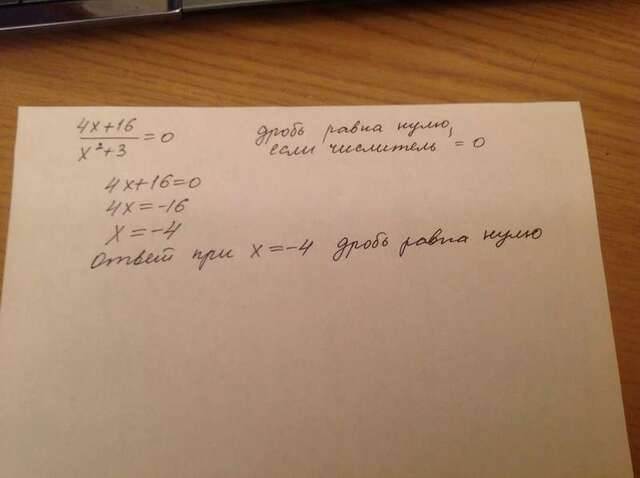 (4x+16)/(x²+3) = 0
дробь равна нулю,
если числитель = 0
4x+16=0
4x=-16
x=-4
Ответ при x=-4 дробь равна нулю